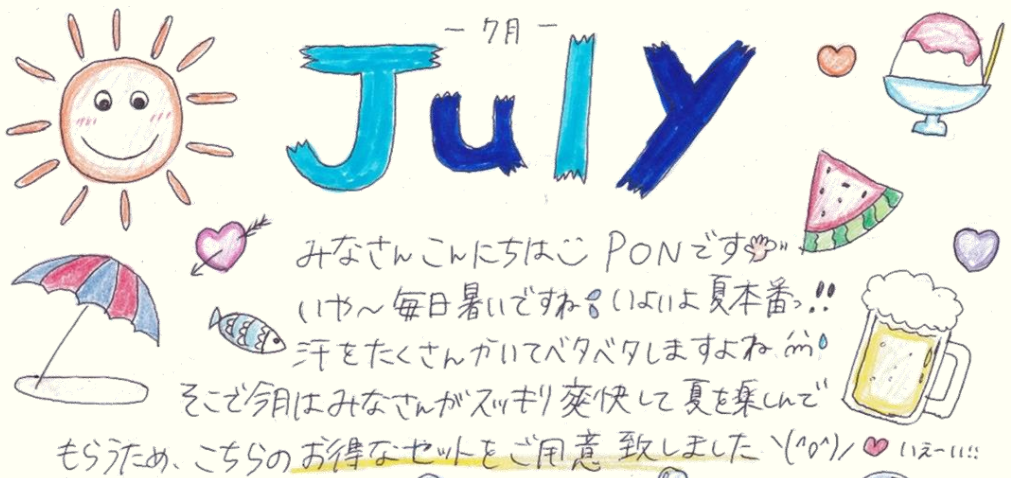 - 7月 -
July
みなさんこんにちは PONです
いや～毎日暑いですね いよいよ夏本番っ!!
汗をたくさんかいてベタベタしますよね
そこで今月はみなさんがスッキリ爽快して夏を楽しんで
もらうため、こちらのお得なセットをご用意致しました ヽ(^o^)ノ いえーい!!